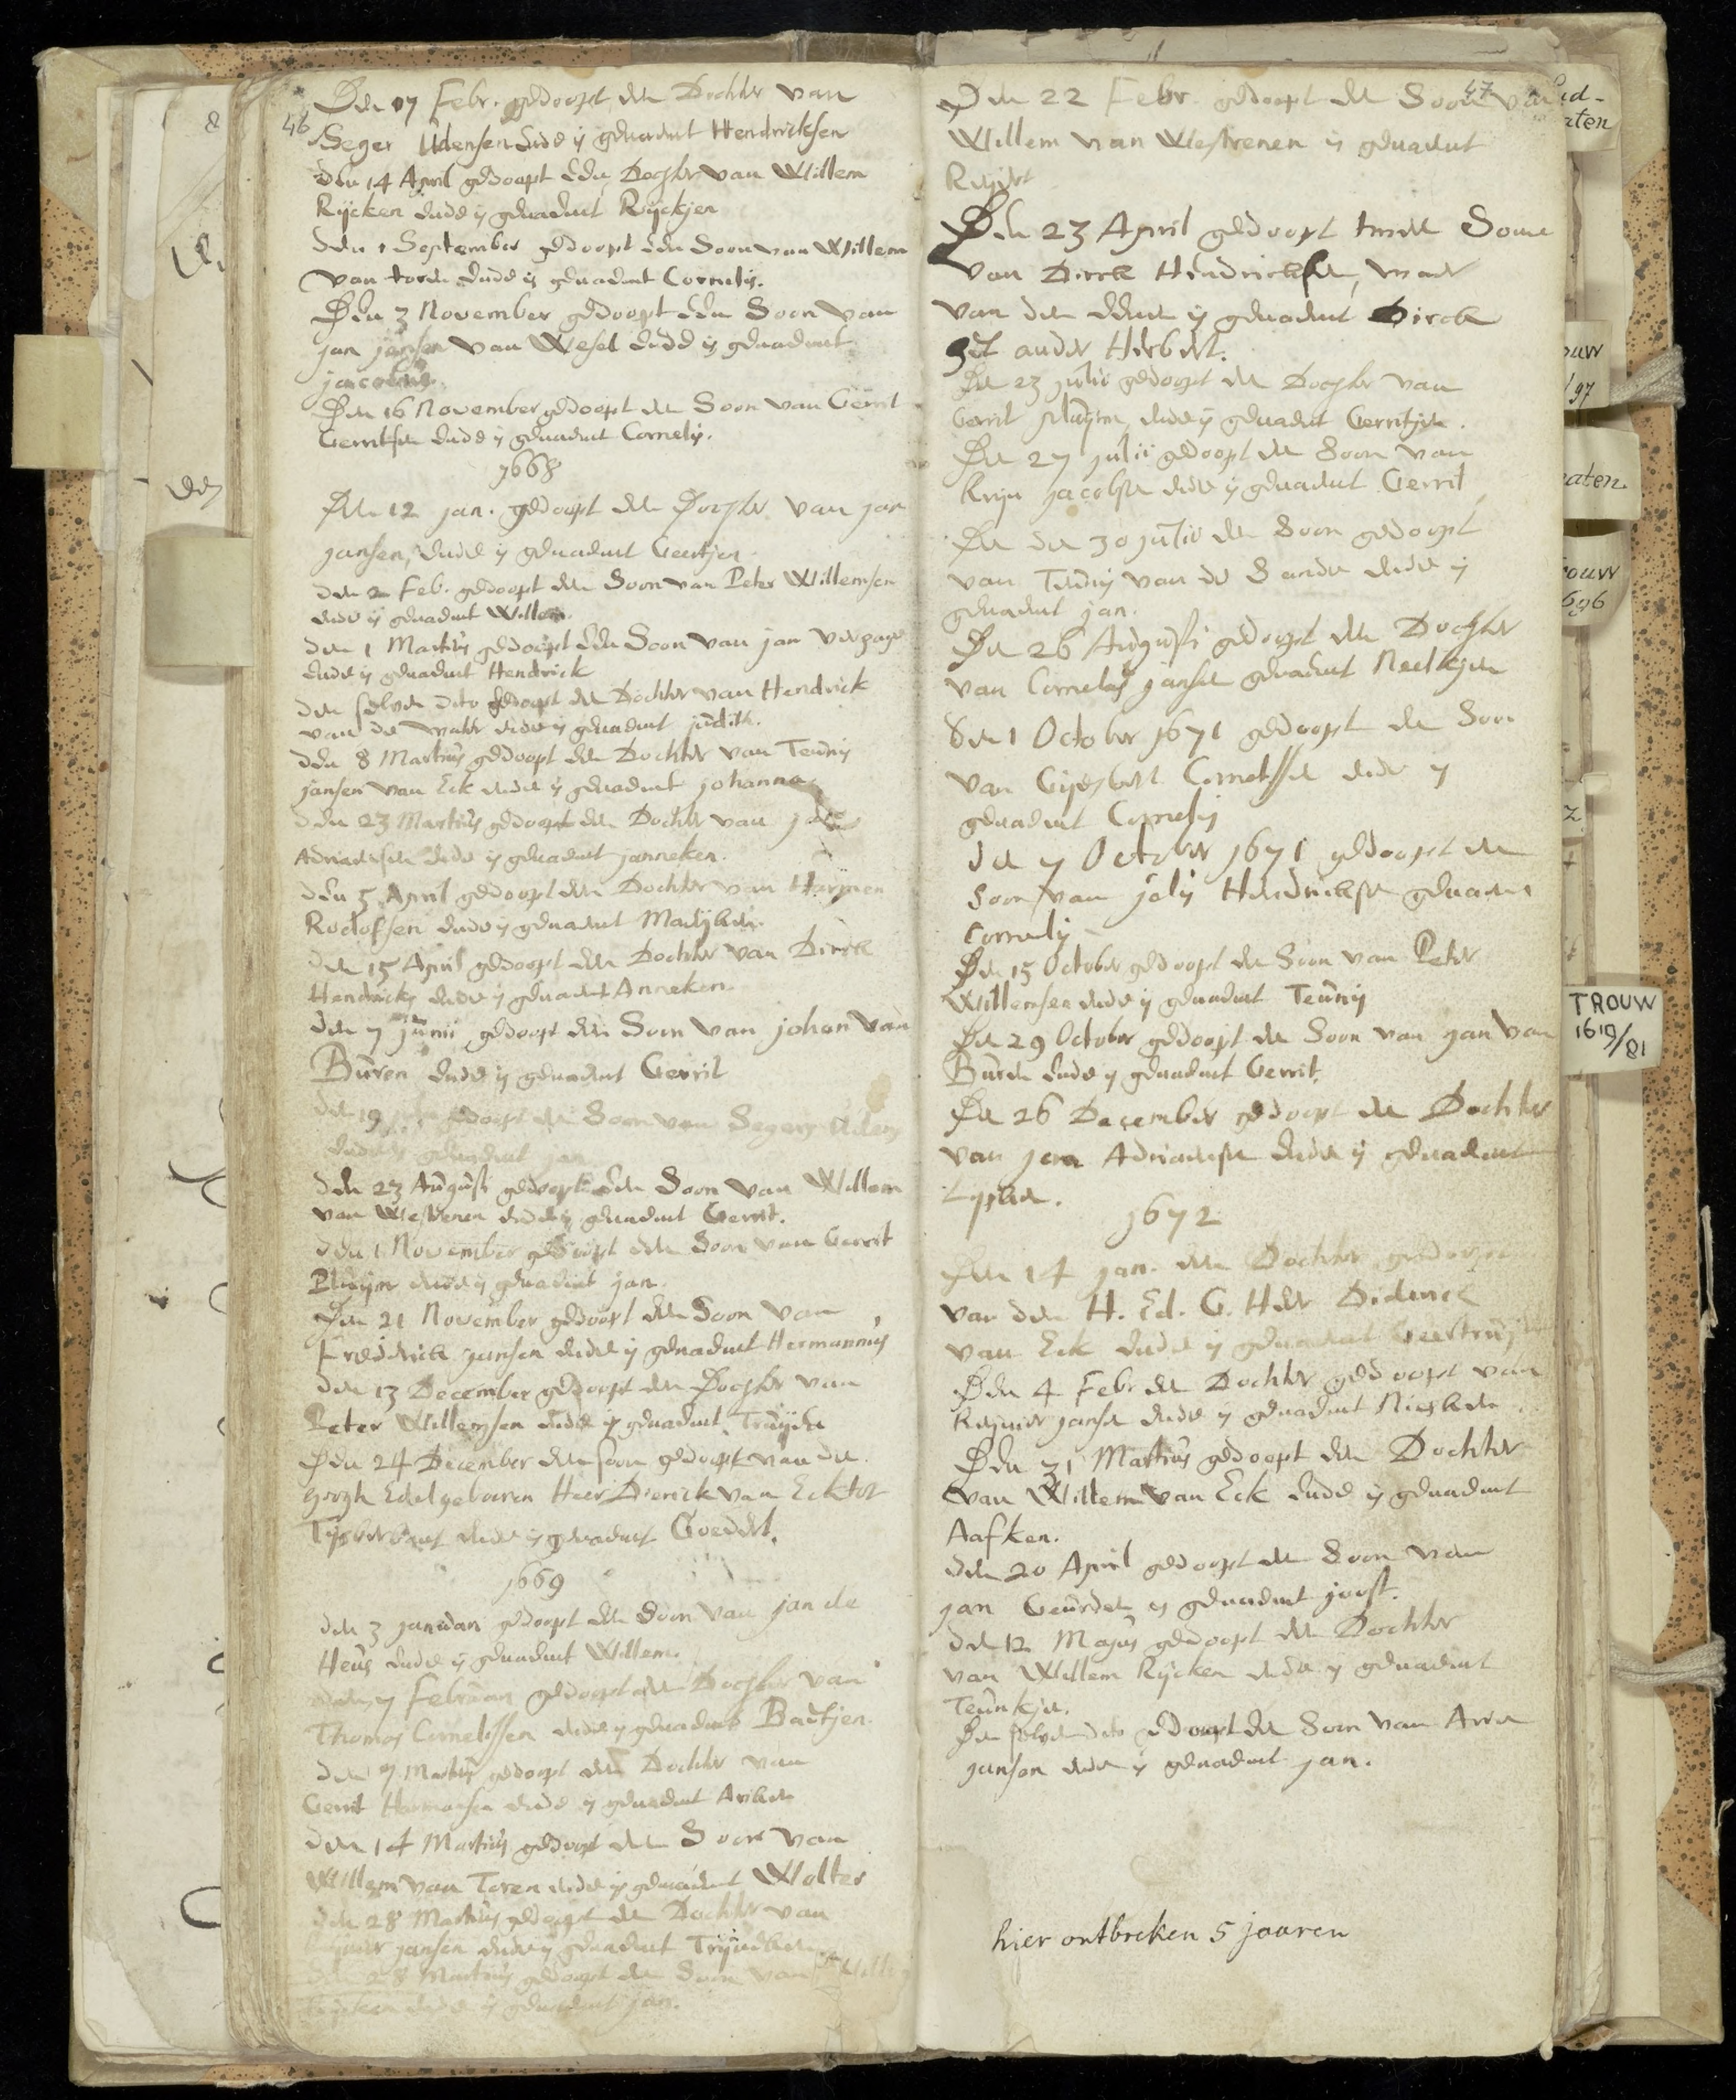 46
Den 17 Febr. gedoopt den Dochter van
Seger Udensen ende is genaemt Hendricksen
den 14 April gedoopt den Dochter van Willem
Rijcken ende is genaemt Rijckjen
den 1 September gedoopt den Soon van Willem
van toren ende is genaemt Cornelis.
Den 3 November gedoopt den Soon van
jan jansen van Wesel ende is genaemt
jacobus.
Den 16 November gedoopt den Soon van Gerrit
Gerritsen ende is genaemt Cornelis.
1668
Den 12 jan. gedoopt den Dochter van jan
jansen, ende is genaemt Geertjen.
den 2 Feb. gedoopt den Soon van Peter Willemsen
ende is genaemt Willem.
den 1 Martius gedoopt den Soon van jan
ende is genaemt Hendrick
den selven dito gedoopt den Dochter van Hendrick
van de water ende is genaemt judith.
den 8 Martius gedoopt den Dochter van Teunis
jansen van Eck ende is genaemt johanna
den 23 Martius gedoopt den Dochter van
Adriaensen ende is genaemt janneken.
den 5 April gedoopt den Dochter van Harmen
Roelofsen ende is genaemt Maeijken.
den 15 April gedoopt den Dochter van Dirck
Hendricks ende is genaemt Anneken.
den 7 junii gedoopt den Soon van johan van
Buren ende is genaemt Gerrit
den 19 gedoopt den Soon van Segers Udens
ende is genaemt jan
den 23 Augusti gedoopt den Soon van Willem
van Westrenen ende is genaemt Gerrit.
den 1 November gedoopt den Soon van Gerrit
Pluijm ende is genaemt jan.
Den 21 November gedoopt den Soon van
Frederick jansen ende is genaemt Hermannus
den 13 December gedoopt den Dochter van
Peter Willemsen ende is genaemt Truijda
Den 24 December den soon gedoopt van den
Hoogh Edelgeboren Heer Dierick van Eck tot
ende is genaemt Goedert.
1669
den 3 januari gedoopt den Soon van jan de
Heus ende is genaemt Willem.
den 7 Februari gedoopt den Dochter van
Thomas Cornelissen ende is genaemt Baetjen.
den 7 Martius gedoopt den Dochter van
Gerrit Harmansen ende is genaemt Ariken
den 14 Martius gedoopt den Soon van
Willem van Toren ende is genaemt Wolter
den 28 Martius gedoopt den Dochter van
jansen ende is genaemt Trijneken
den 28 Martius gedoopt den Soon van Willem
Rijcken ende is genaemt jan.
47
Den 22 Febr. gedoopt den Soon van
Willem van Westrenen is genaemt
Reijer
Den 23 April gedoopt twee Sonen
van Dirck Hendricksen, waer
van den eenen is genaemt Dirck
het ander Herbert.
Den 23 julii gedoopt den Dochter van
Gerrit Pluijm, ende is genaemt Gerritjen.
Den 27 julii gedoopt den Soon van
Krijn jacobsen ende is genaemt Gerrit
Den den 30 julii den Soon gedoopt
van Teunis van de Sande ende is
genaemt jan.
Den 26 Augusti gedoopt den Dochter
van Cornelis jansen genaemt Neeltjen
Den 1 October 1671 gedoopt den Soon
van Gijsbert Cornelissen ende is
genaemt Cornelis
den 7 October 1671 gedoopt den
Soon van jelis Hendricksen genaemt
Cornelis
Den 15 October gedoopt den Soon van Peter
Willemsen ende is genaemt Teunis
Den 29 October gedoopt den Soon van jan van
Buren ende is genaemt Gerrit.
Den 26 December gedoopt den Dochter
van jan Adriaensen ende is genaemt
Lijsken.
1672
Den 14 jan. den Dochter gedoopt
van den H. Ed. G. Heer Diderick
van Eck ende is genaemt Geertruijt
Den 4 Febr den Dochter gedoopt van
Reijnier jansen ende is genaemt Niesken
Den 31 Martius gedoopt den Dochter
van Willem van Eck ende is genaemt
Aafken.
den 20 April gedoopt den Soon van
jan Geurden is genaemt joost.
den 12 Majus gedoopt den Dochter
van Willem Rijcken ende is genaemt
Teunkjen.
Den selven dito gedoopt den Soon van Aert
jansen ende is genaemt jan.
hier ontbreken 5 jaaren
TROUW
1619/81